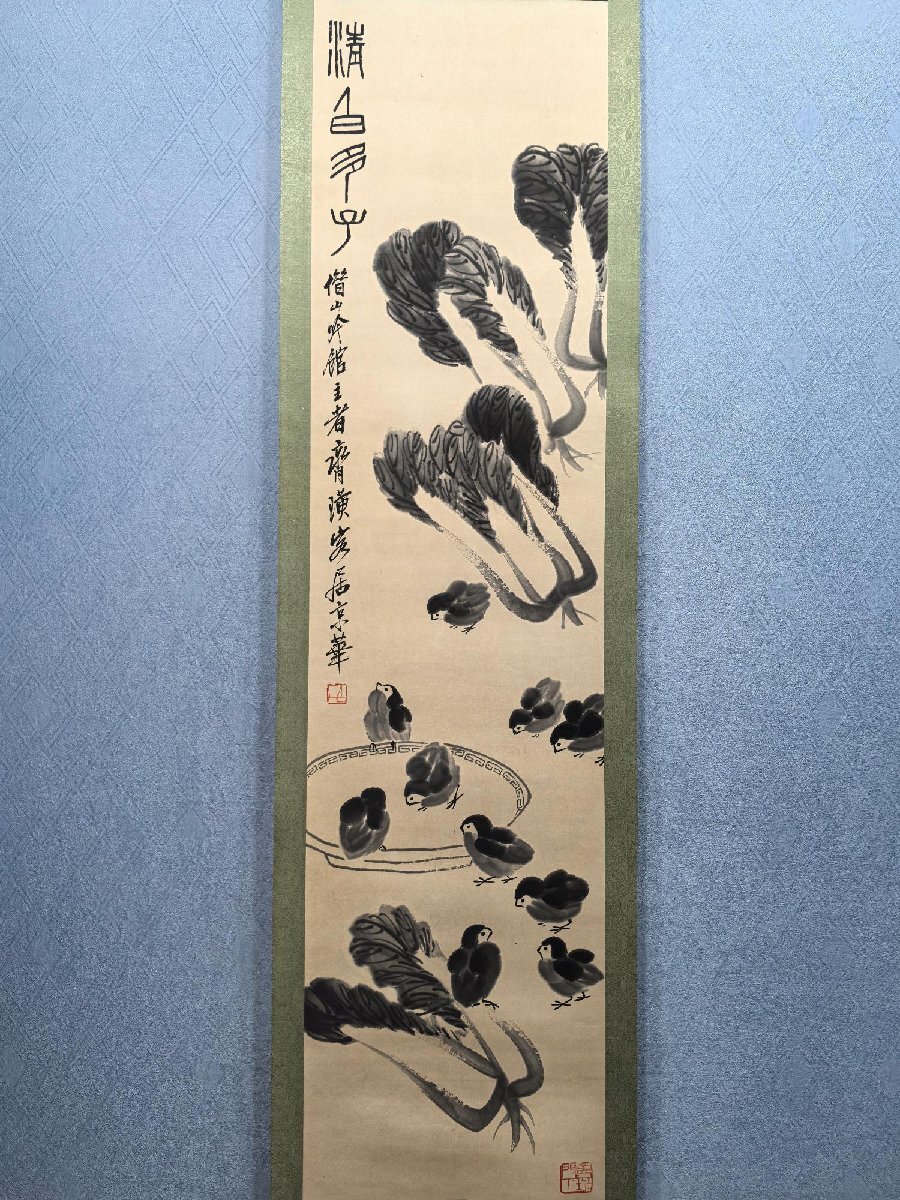 清白多子
借山吟館主者齊璜客居京華